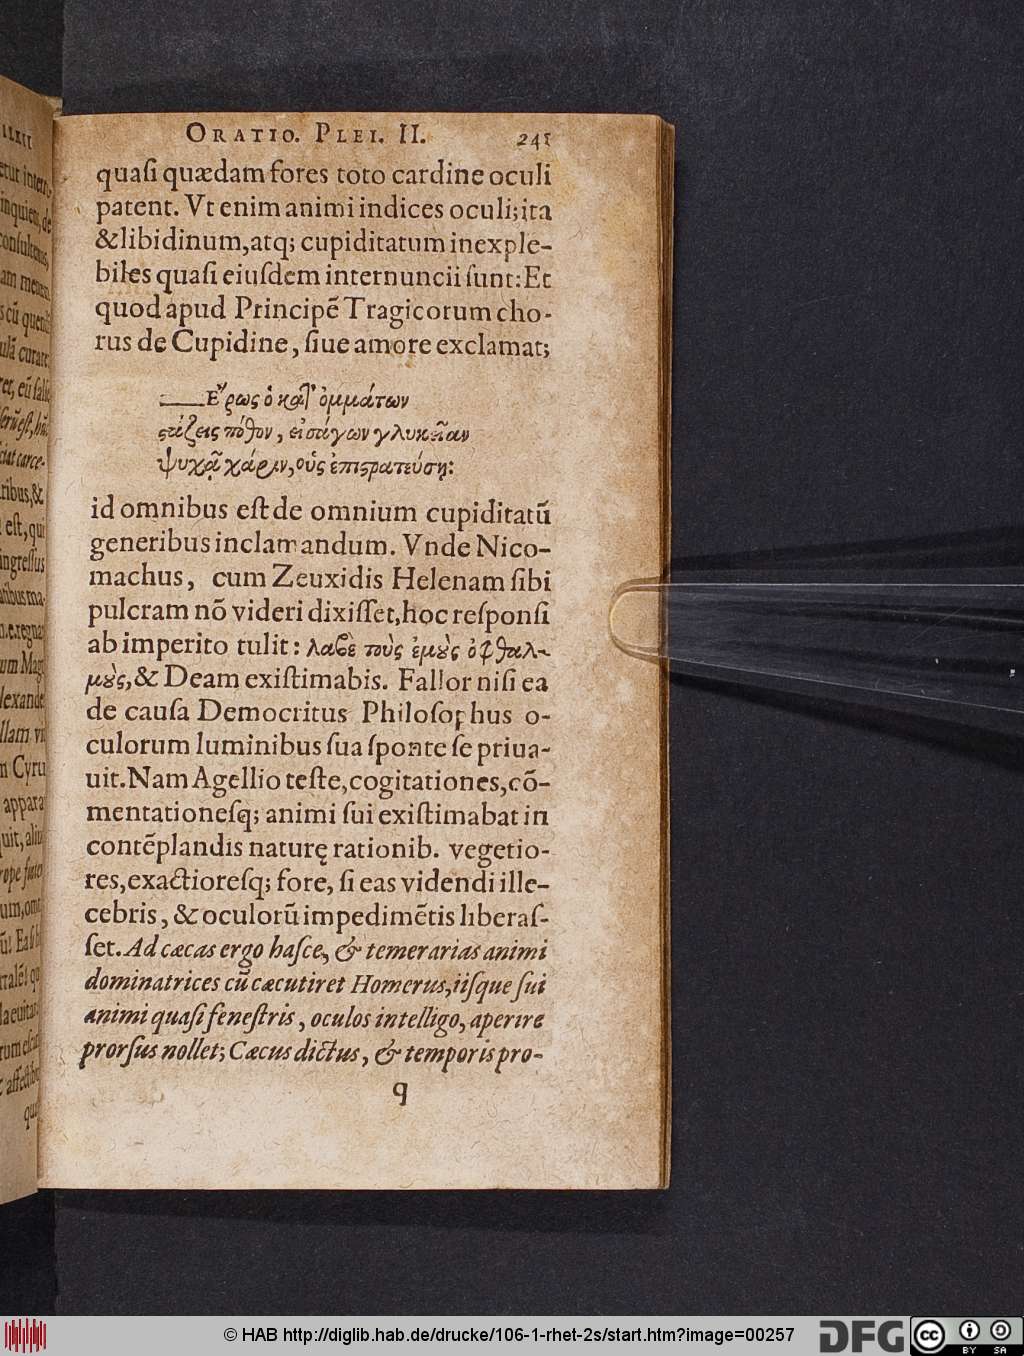 ORATIO. PLEI. II. 241
quaſi quædam fores toto cardine oculi
patent. Vt enim animi indices oculi; ita
& libidinum, atq; cupiditatum inexple-
biles quaſi eiuſdem internuncii ſunt: Et
quod apud Principē Tragicorum cho-
rus de Cupidine, ſiue amore exclamat;
Ἔρως ὁ κατ' ὀμμάτων
στάζεις πόθον, εἰσάγων γλυκεῖαν
ψυχᾷ χάριν, οὓς ἐπιστρατεύσῃ:
id omnibus eſt de omnium cupiditatū
generibus inclamandum. Vnde Nico-
machus, cum Zeuxidis Helenam ſibi
pulcram nō videri dixiſſet, hoc reſponſi
ab imperito tulit: λαβὲ τοὺς ἐμοὺς ὀφθαλ-
μοὺς, & Deam exiſtimabis. Fallor niſi ea
de cauſa Democritus Philoſophus o-
culorum luminibus ſua ſponte ſe priua-
uit. Nam Agellio teſte, cogitationes, cō-
mentationeſq; animi ſui exiſtimabat in
contēplandis naturę rationib. vegetio-
res, exactioreſq; fore, ſi eas videndi ille-
cebris, & oculorū impedimētis liberaſ-
ſet. Ad cæcas ergo haſce, & temerarias animi
dominatrices cū cæcutiret Homerus, iiſque ſui
animi quaſi feneſtris, oculos intelligo, aperire
prorſus nollet; Cæcus dictus, & temporis pro-
q
© HAB http://diglib.hab.de/drucke/106-1-rhet-2s/start.htm?image=00257
DFG
cc
BY SA